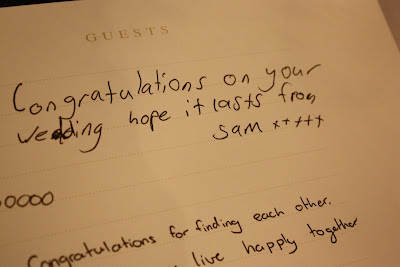 GUESTS
Congratulations on your
Wedding hope it lasts from
Sam +++++
OOOO
Congratulations for finding each other.
live happy together